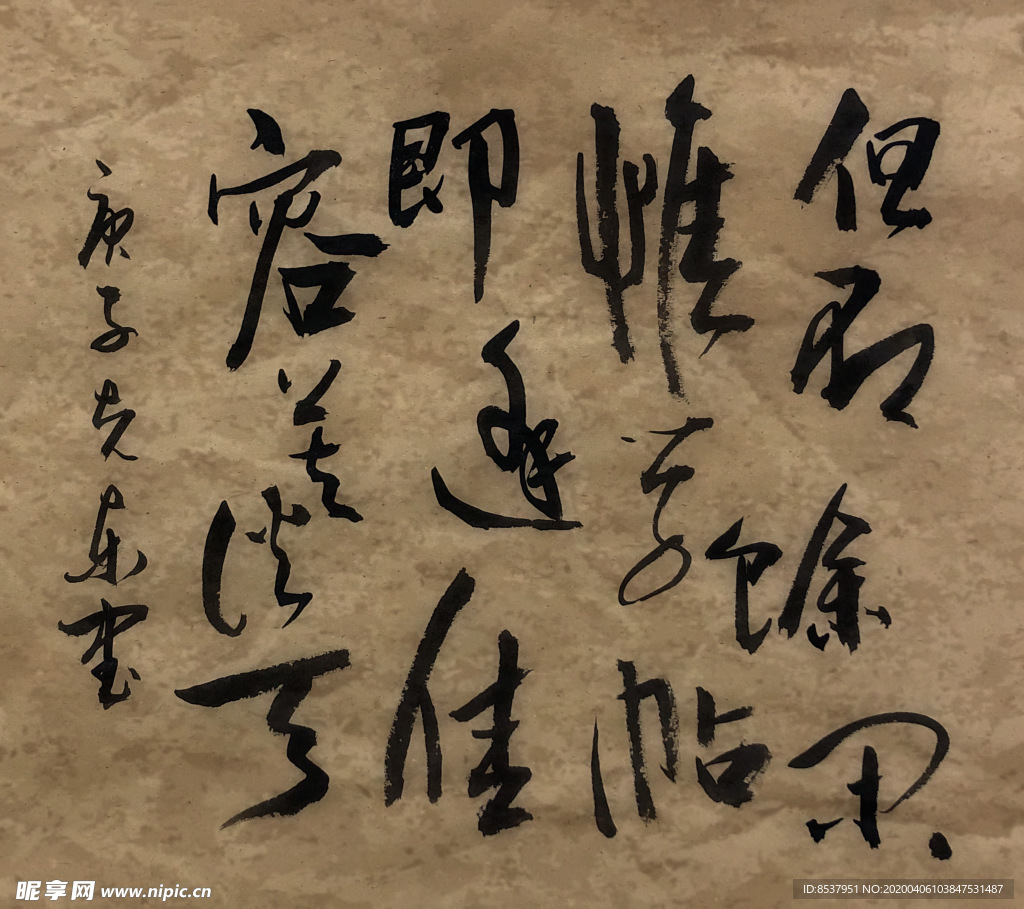 但有餘閑
惟學帖
即逢佳
容莫談天
庚子先東書
昵享网 www.nipic.cn
ID:8537951 NO:20200406103847531487